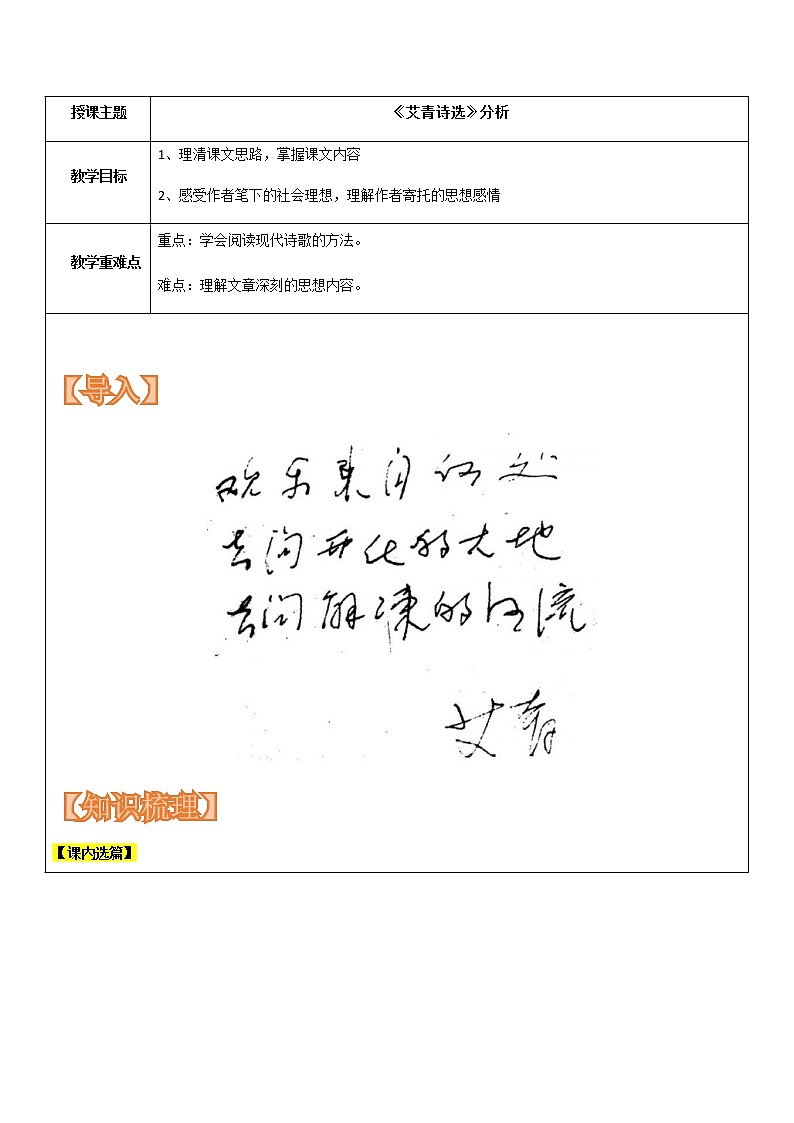 授课主题
《艾青诗选》分析
教学目标
1、理清课文思路，掌握课文内容
2、感受作者笔下的社会理想，理解作者寄托的思想感情
教学重难点
重点：学会阅读现代诗歌的方法。
难点：理解文章深刻的思想内容。
【导入】
欢乐来自何处
去问开化的大地
去问解冻的河流
艾青
【知识梳理】
【课内选篇】